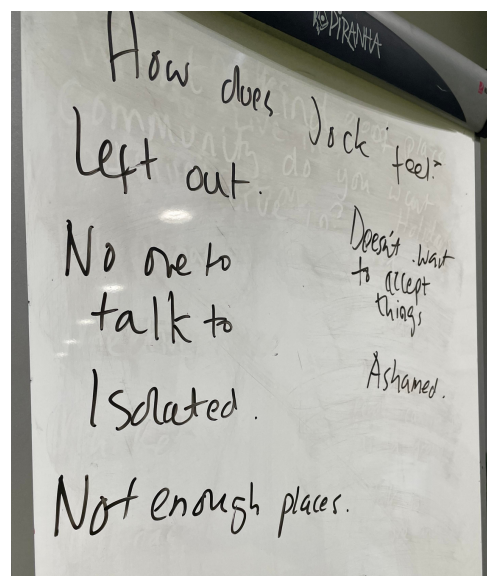 PIRANHA
How does Jock feel?
Left out.
No one to
talk to
Isolated.
Not enough places.
Doesn't want
to accept
things
Ashamed.